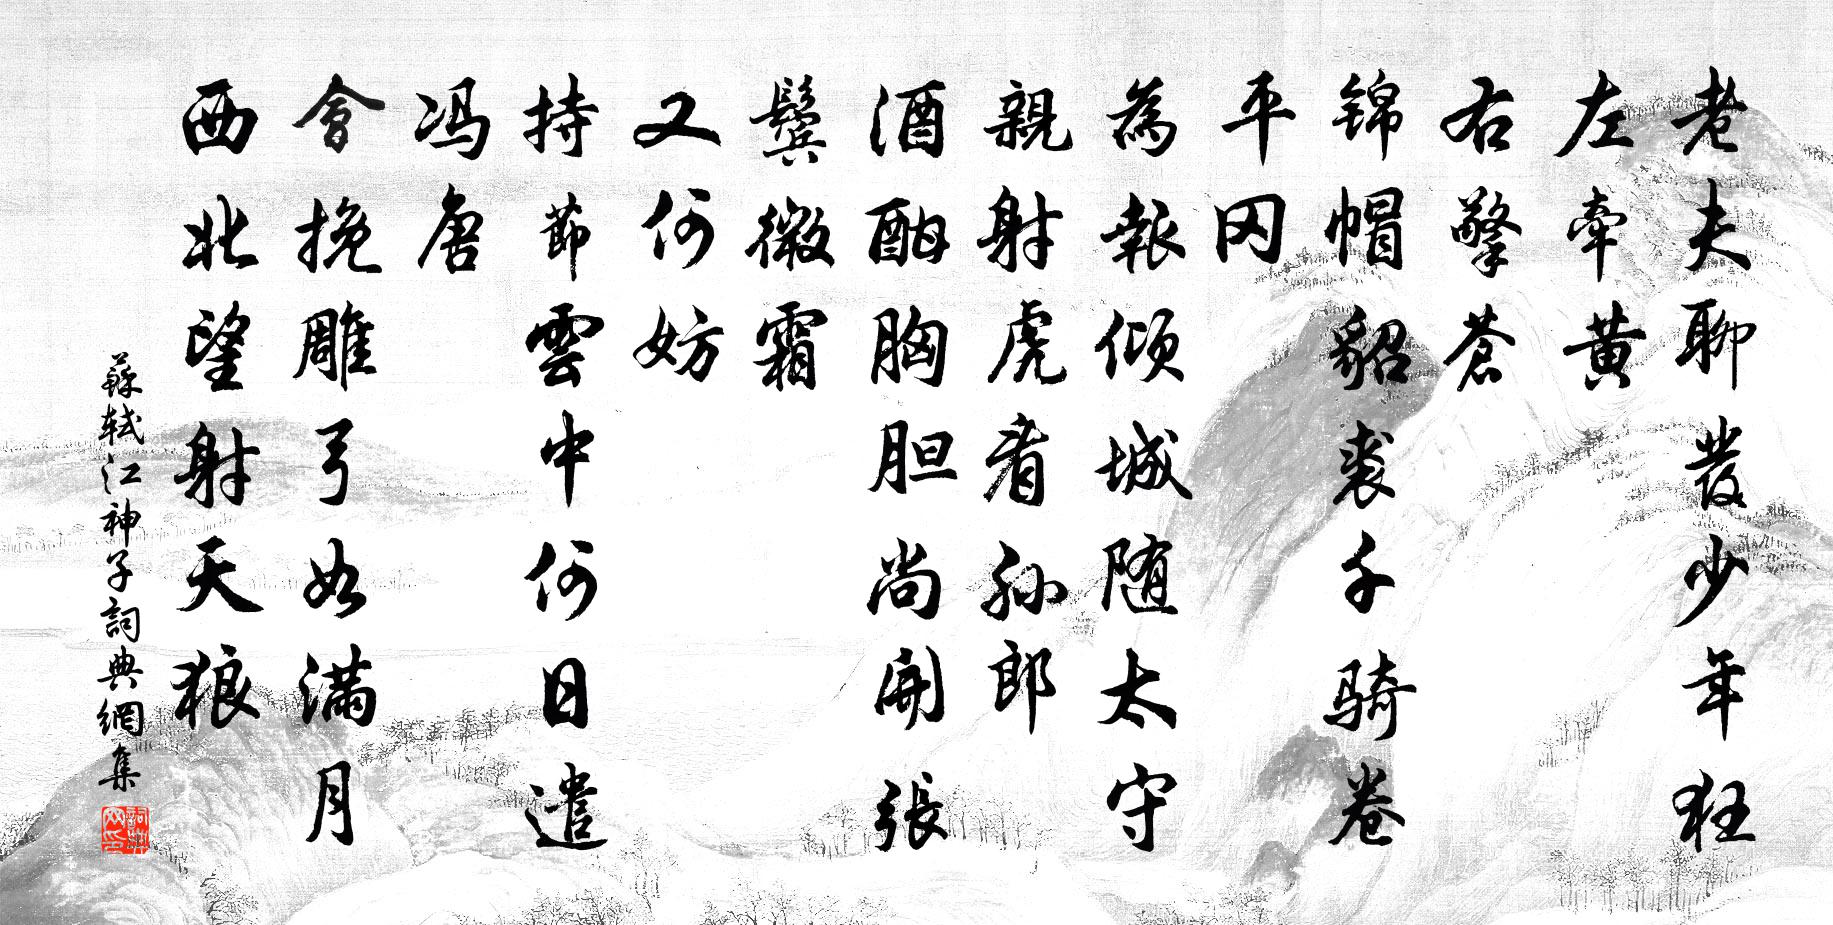 老夫聊發少年狂
左牽黃
右擎蒼
锦帽貂裘千骑卷
平冈
為報倾城随太守
親射虎看孙郎
酒酣胸胆尚開張
鬓微霜
又何妨
持節雲中何日遣
冯唐
會挽雕弓如满月
西北望射天狼
蘇轼江神子詞典網集